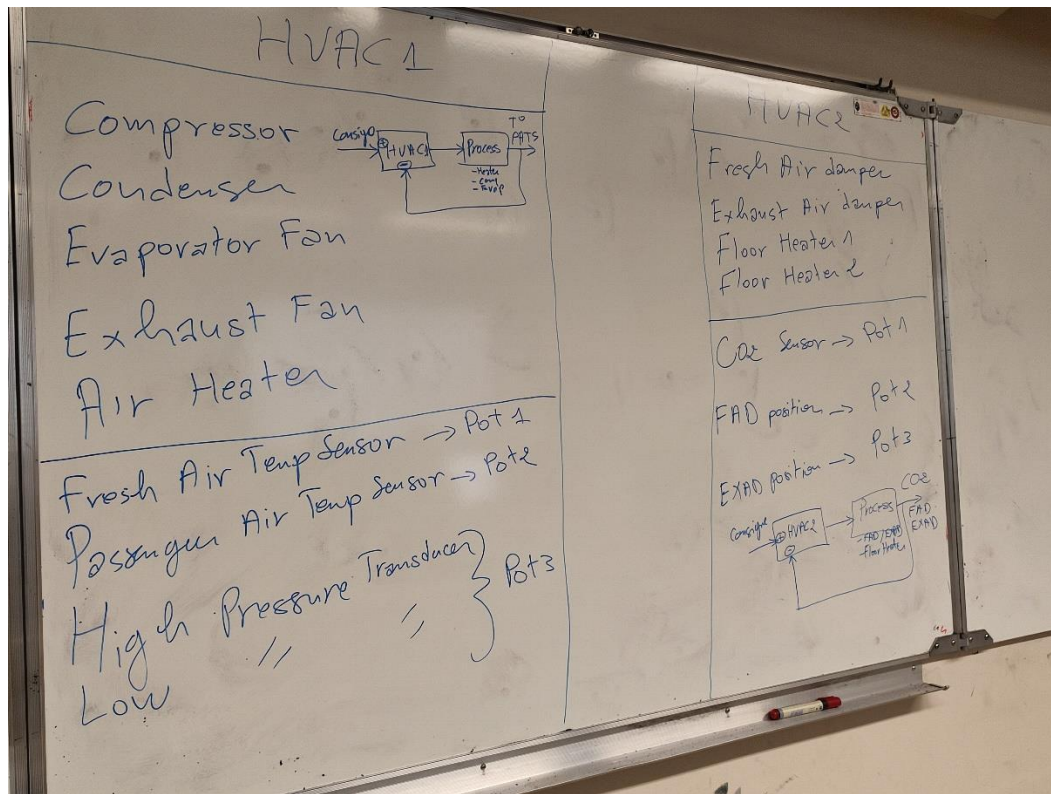 HVAC1
Compressor
Condenser
Evaporator Fan
Exhaust Fan
Air Heater
Consigne
+ HVAC1
-
Process
- Heater
- Cond
- Evap
T°
PATS
Fresh Air Temp Sensor → Pot 1
Passenger Air Temp Sensor → Pot2
High Pressure Transducer } Pot3
Low // //
HVAC2
Fresh Air damper
Exhaust Air damper
Floor Heater 1
Floor Heater 2
CO2 Sensor → Pot 1
FAD position → Pot2
EXAD position → Pot3
Consigne
+ HVAC2
-
Process
- FAD/EXAD
- Floor Heater
CO2
FAD
EXAD